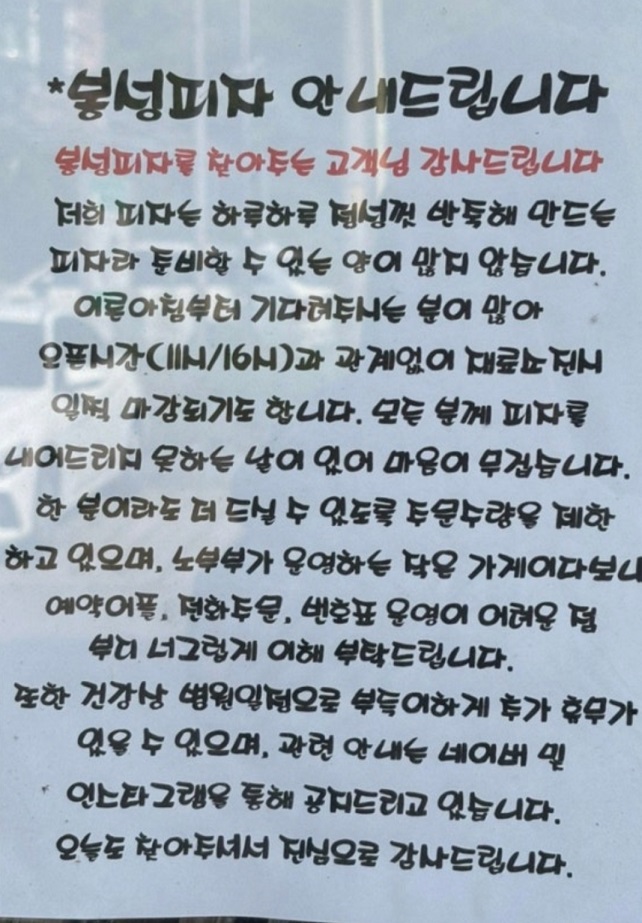 *봉성피자 안내드립니다
봉성피자를 찾아주는 고객님 감사드립니다
저희 피자는 하루하루 정성껏 반죽해 만드는
피자라 준비할 수 있는 양이 많지 않습니다.
이른아침부터 기다려주시는 분이 많아
오픈시간(11시/16시)과 관계없이 재료소진시
일찍 마감되기도 합니다. 모든 분께 피자를
내어드리지 못하는 날이 있어 마음이 무겁습니다.
한 분이라도 더 드실 수 있도록 주문수량을 제한
하고 있으며, 노부부가 운영하는 작은 가게이다보니
예약어플, 전화주문, 번호표 운영이 어려운 점
부디 너그럽게 이해 부탁드립니다.
또한 건강상 병원일정으로 부득이하게 추가 휴무가
있을 수 있으며, 관련 안내는 네이버 및
인스타그램을 통해 공지드리고 있습니다.
오늘도 찾아주셔서 진심으로 감사드립니다.